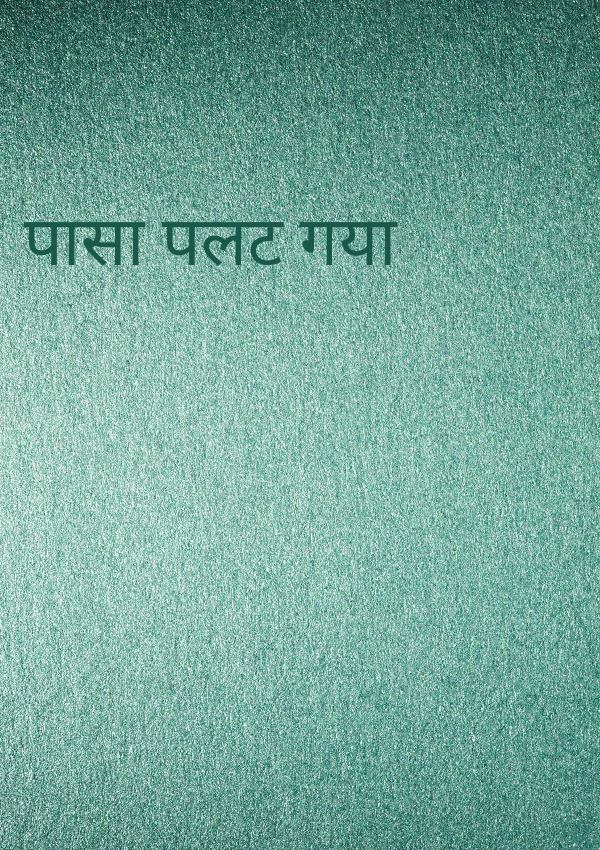 पासा पलट गया